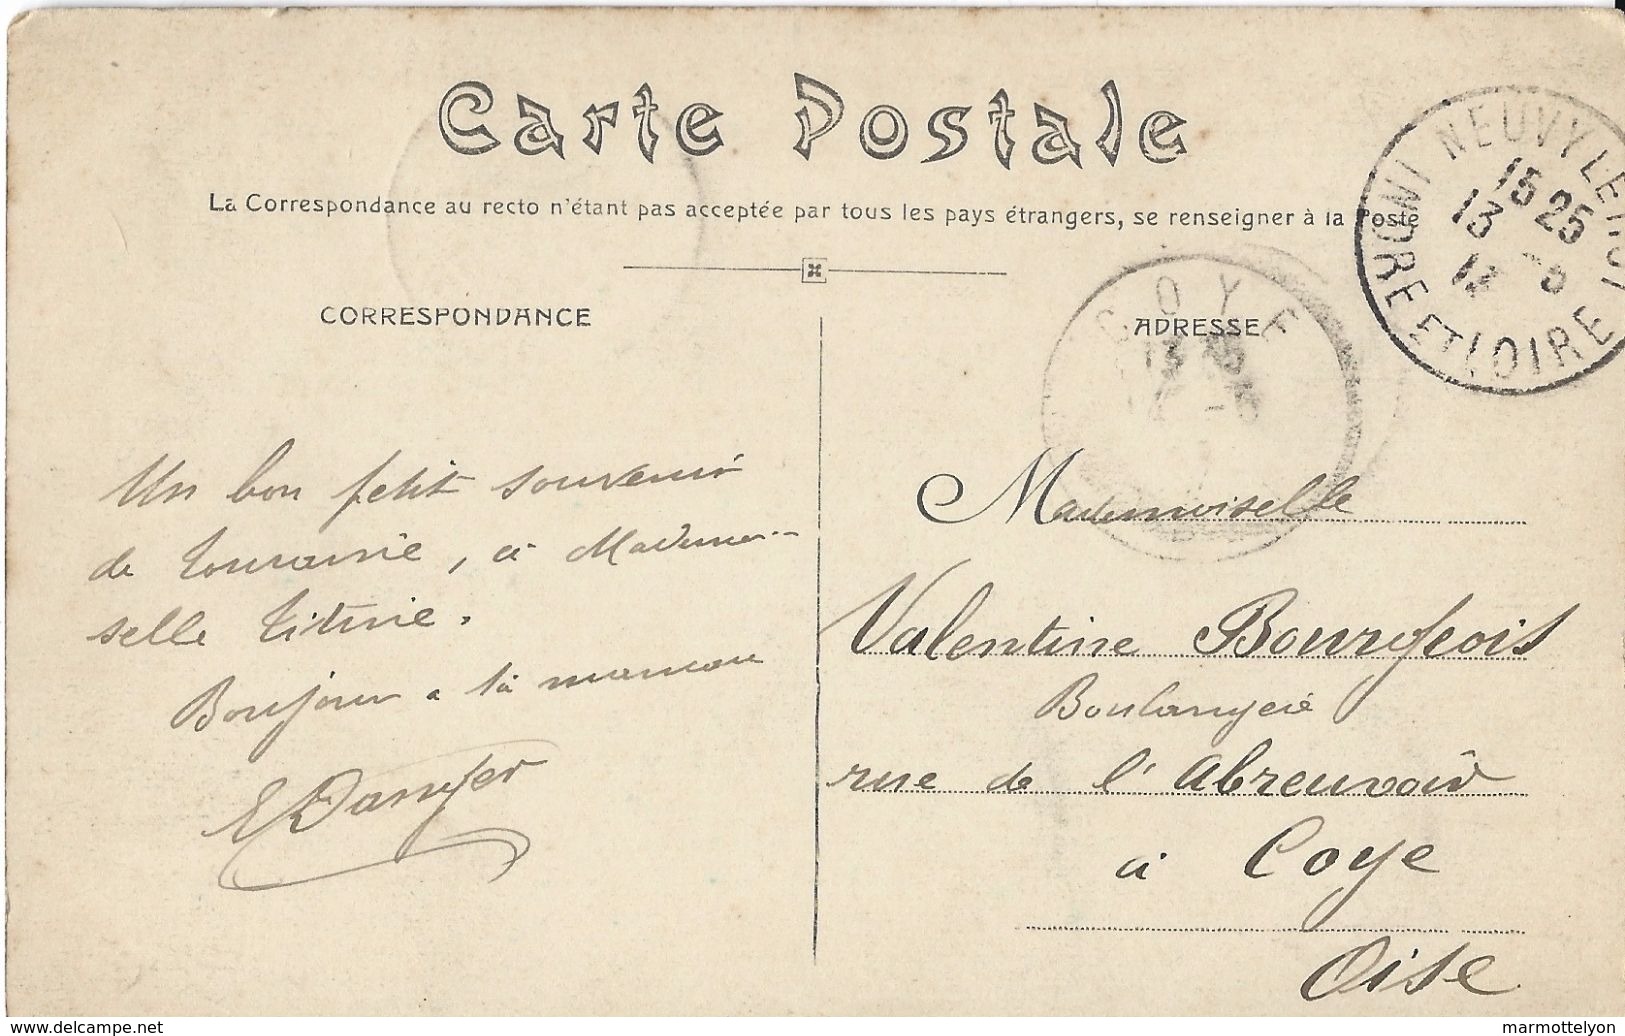 Carte Postale
La Correspondance au recto n'étant pas acceptée par tous les pays étrangers, se renseigner à la Poste
CORRESPONDANCE
Un bon petit souvenir
de touraine, à Mademoi-
selle Titine.
Bonjour a ta maman
E Danger
ADRESSE
Mademoiselle
Valentine Bourgeois
Boulangerie
rue de l'abreuvoir
à Coye
Oise
COYE
NEUVY LE ROI
15 25
13 - 5
INDRE ET LOIRE
www.delcampe.net
marmottelyon